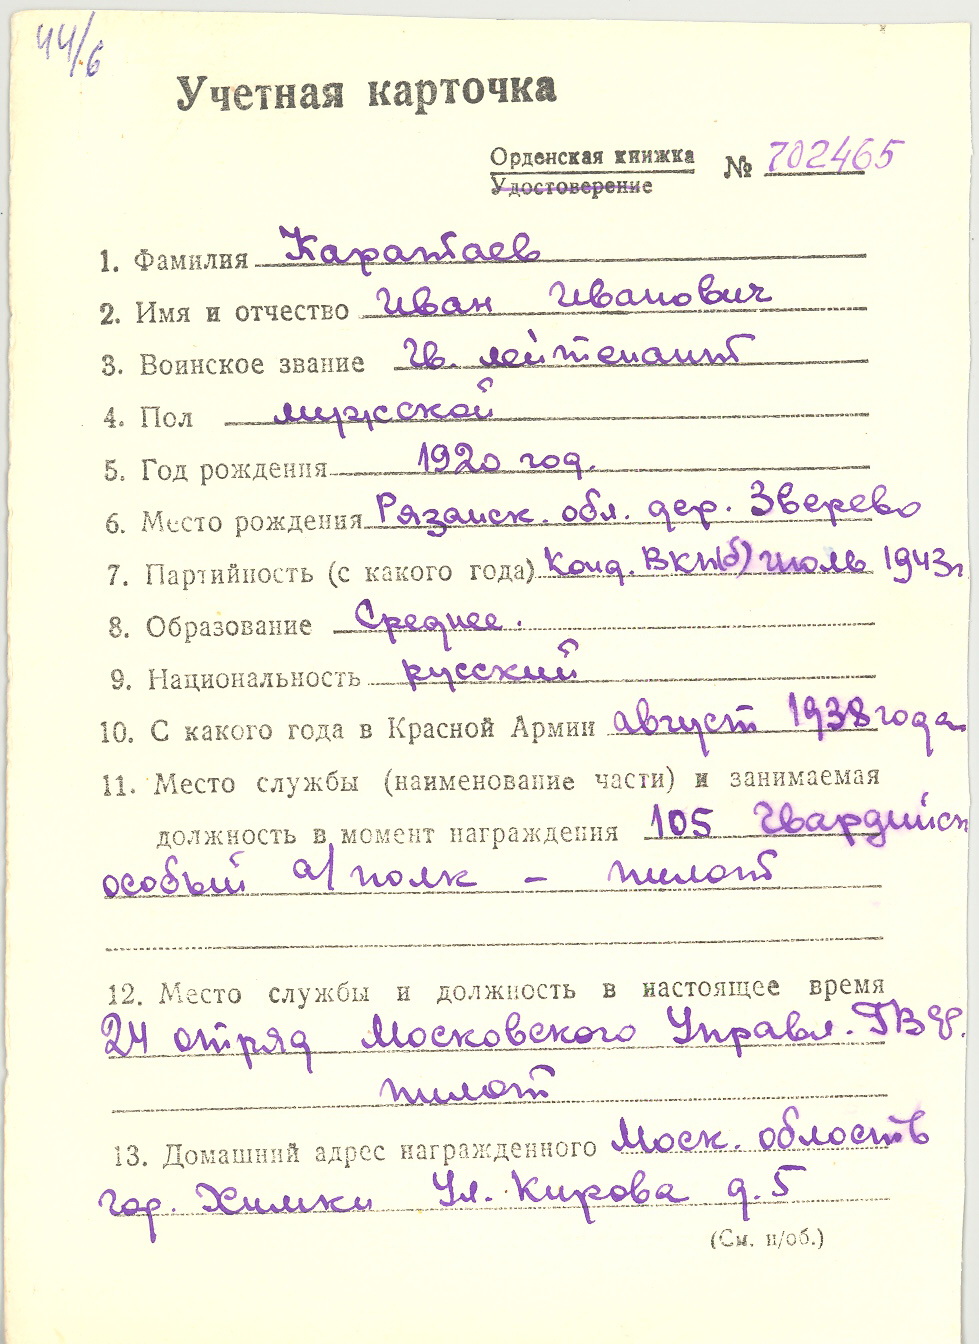 44/6
Учетная карточка
Орденская книжка № 702465
Удостоверение
1. Фамилия Каратаев
2. Имя и отчество Иван Иванович
3. Воинское звание Гв. лейтенант
4. Пол мужской
5. Год рождения 1920 год.
6. Место рождения Рязанск. обл. дер. Зверево
7. Партийность (с какого года) Канд. ВКП(б) июль 1943г
8. Образование Среднее.
9. Национальность русский
10. С какого года в Красной Армии август 1938 года
11. Место службы (наименование части) и занимаемая
должность в момент награждения 105 Гвардийск
особый а/полк – пилот
12. Место службы и должность в настоящее время
24 отряд Московского Управл. ГВФ.
пилот
13. Домашний адрес награжденного Моск. область
гор. Химки Ул. Кирова д. 5
(См. н/об.)